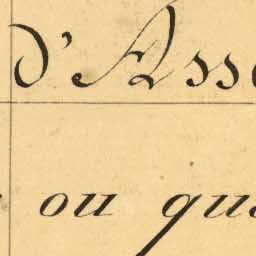 d'Ass
ou qu